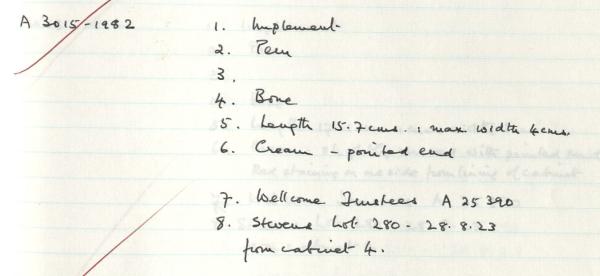 A 3015-1982 1. Implement
2. Peru
3.
4. Bone
5. Length 15.7cms. : max width 4cms.
6. Cream - pointed end
7. Wellcome Trustees A 25390
8. Stevens Lot 280 - 28.8.23
from cabinet 4.